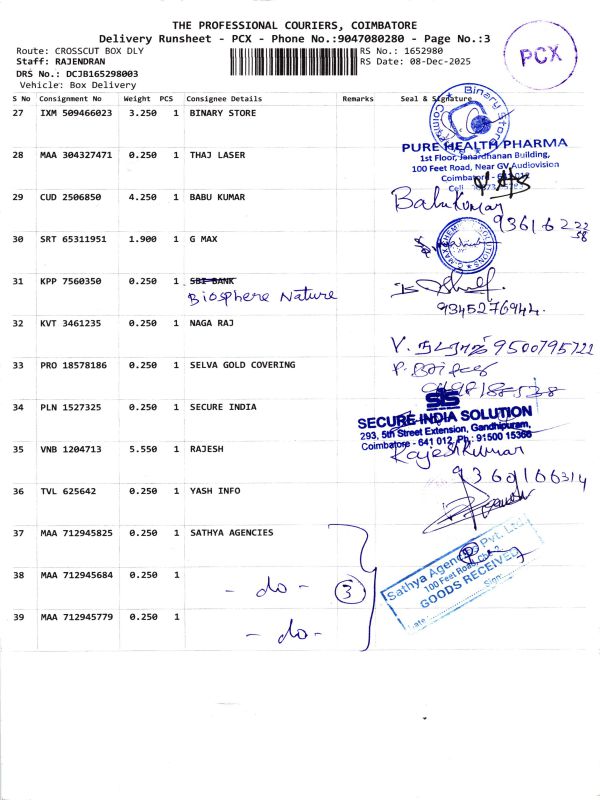 THE PROFESSIONAL COURIERS, COIMBATORE
Delivery Runsheet - PCX - Phone No.:9047080280 - Page No.:3
PCX
Route: CROSSCUT BOX DLY
RS No.: 1652980
Staff: RAJENDRAN
RS Date: 08-Dec-2025
DRS No.: DCJB165298003
Vehicle: Box Delivery
S No Consignment No Weight PCS Consignee Details Remarks Seal & Signature
27 IXM 509466023 3.250 1 BINARY STORE
Binary Store
PURE HEALTH PHARMA
1st Floor, Janardhanan Building,
100 Feet Road, Near GV Audiovision
28 MAA 304327471 0.250 1 THAJ LASER
Coimbatore
Cell
29 CUD 2506850 4.250 1 BABU KUMAR
Babu Kumar
30 SRT 65311951 1.900 1 G MAX
31 KPP 7560350 0.250 1 SBI BANK
Biosphere Nature
9345276944.
32 KVT 3461235 0.250 1 NAGA RAJ
V. நடராஜ் 9500795722
33 PRO 18578186 0.250 1 SELVA GOLD COVERING
34 PLN 1527325 0.250 1 SECURE INDIA
SIS
SECURE INDIA SOLUTION
293, 5th Street Extension, Gandhipuram,
Coimbatore - 641 012. Ph.: 91500 15366
35 VNB 1204713 5.550 1 RAJESH
Rajeshkumar
9360166314
36 TVL 625642 0.250 1 YASH INFO
37 MAA 712945825 0.250 1 SATHYA AGENCIES
Sathya Agencies Pvt. Ltd
100 Feet Road, Cbe-2
GOODS RECEIVED
Date: Sign:
38 MAA 712945684 0.250 1
- do - 3
39 MAA 712945779 0.250 1
- do -